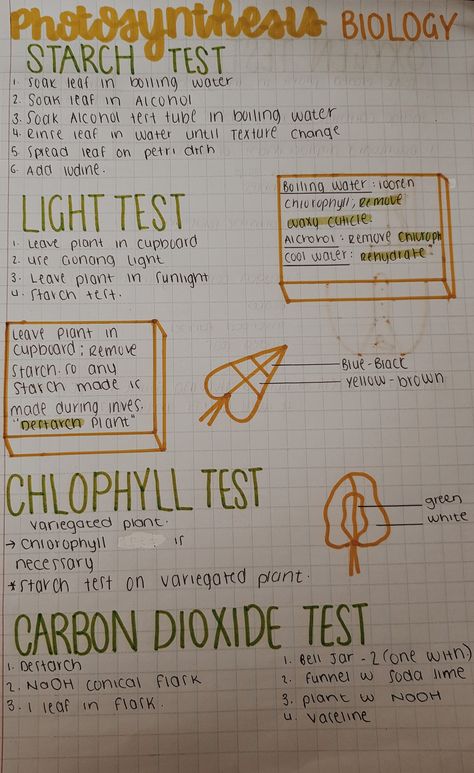 Photosynthesis BIOLOGY
STARCH TEST
1. Soak leaf in boiling water
2. Soak leaf in Alcohol
3. Soak Alcohol test tube in boiling water
4. Rinse leaf in water until texture change
5. Spread leaf on petri dish
6. Add iodine.
Boiling water: loosen
chlorophyll; remove
waxy cuticle.
Alchohol: Remove chloroph
Cool water: Rehydrate
LIGHT TEST
1. Leave plant in cupboard
2. use light
3. Leave plant in sunlight
4. Starch test.
Leave plant in
cupboard: Remove
starch. so any
starch made is
made during inves.
"Destarch plant"
Blue-Black
yellow-brown
CHLOPHYLL TEST
variegated plant.
→ Chlorophyll is
necessary
*Starch test on variegated plant.
green
white
CARBON DIOXIDE TEST
1. Destarch
2. NaOH conical flask
3. 1 leaf in flask.
1. Bell Jar - 2 (one with)
2. funnel w soda lime
3. plant w NaOH
4. vaseline